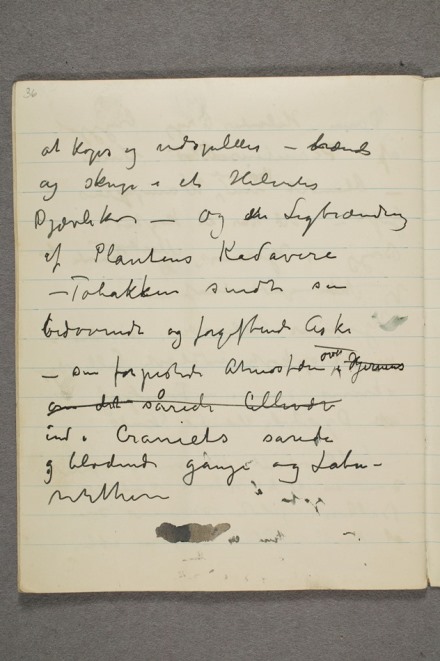 36
at koges og udspilles –
og skrige i et Helvedes
Djævlekor — og den Ligbrænding
af Plantens Kadavere
– Tobakken sendte sin
bedøvende og forgiftende Aske
– sin forpestede Atmosfære over Hjernens
om det sårede Cellevæv
ind i Craniets sarede
og blodende gånge og Laby-
rinther